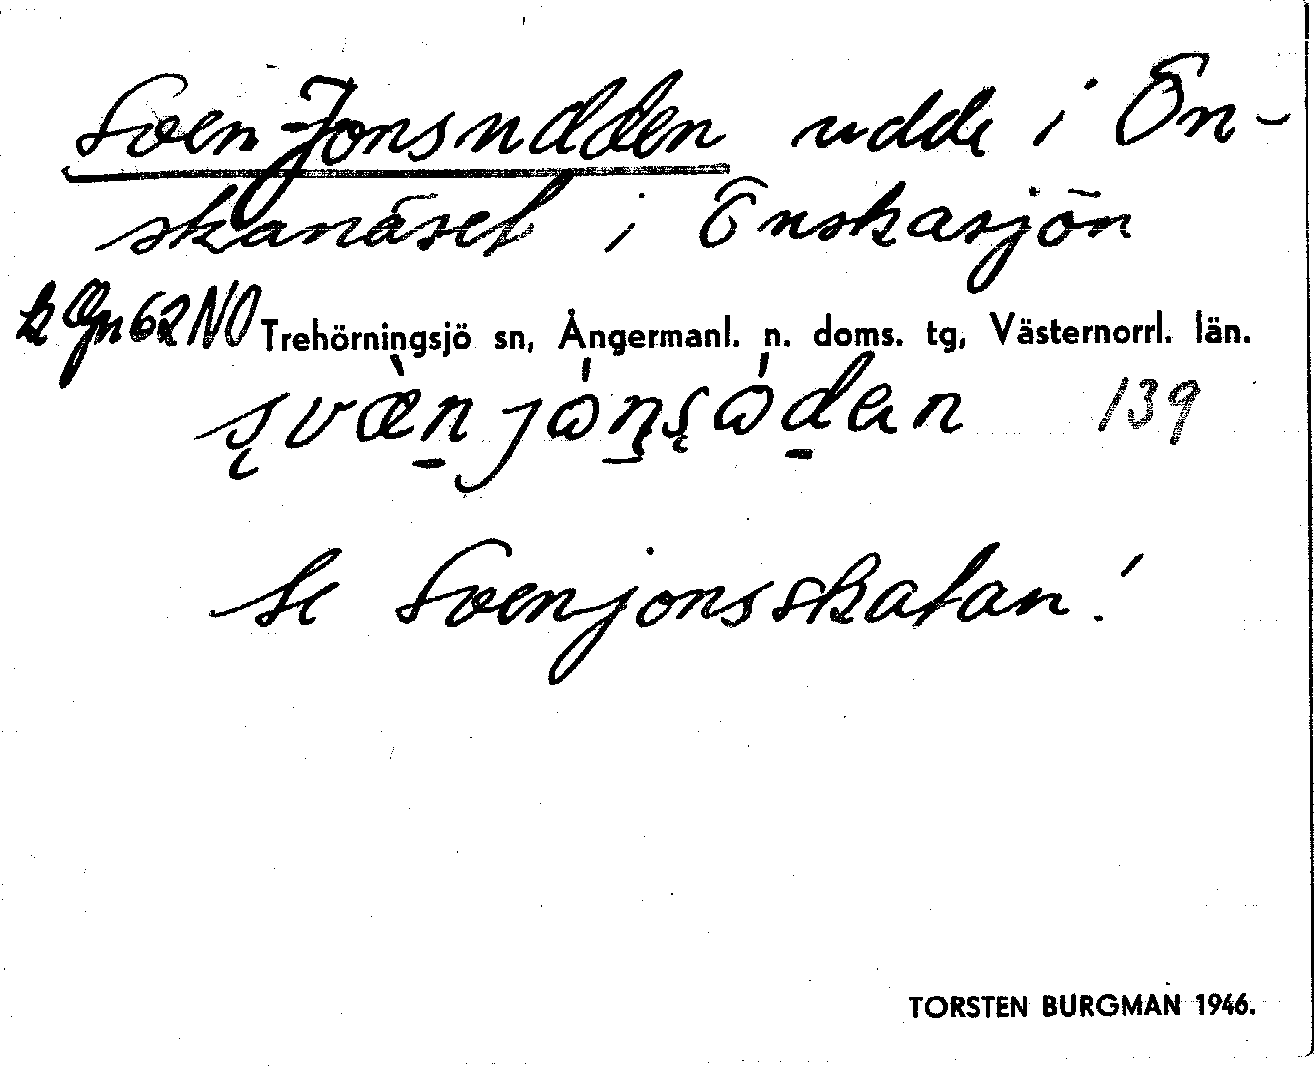 Sven-Jonsudden udde i Ön-
skanäset i Önskasjön
k Gn 62 NO Trehörningsjö sn, Ångermanl. n. doms. tg, Västernorrl. län.
139
Se Svenjonsskatan!
TORSTEN BURGMAN 1946.